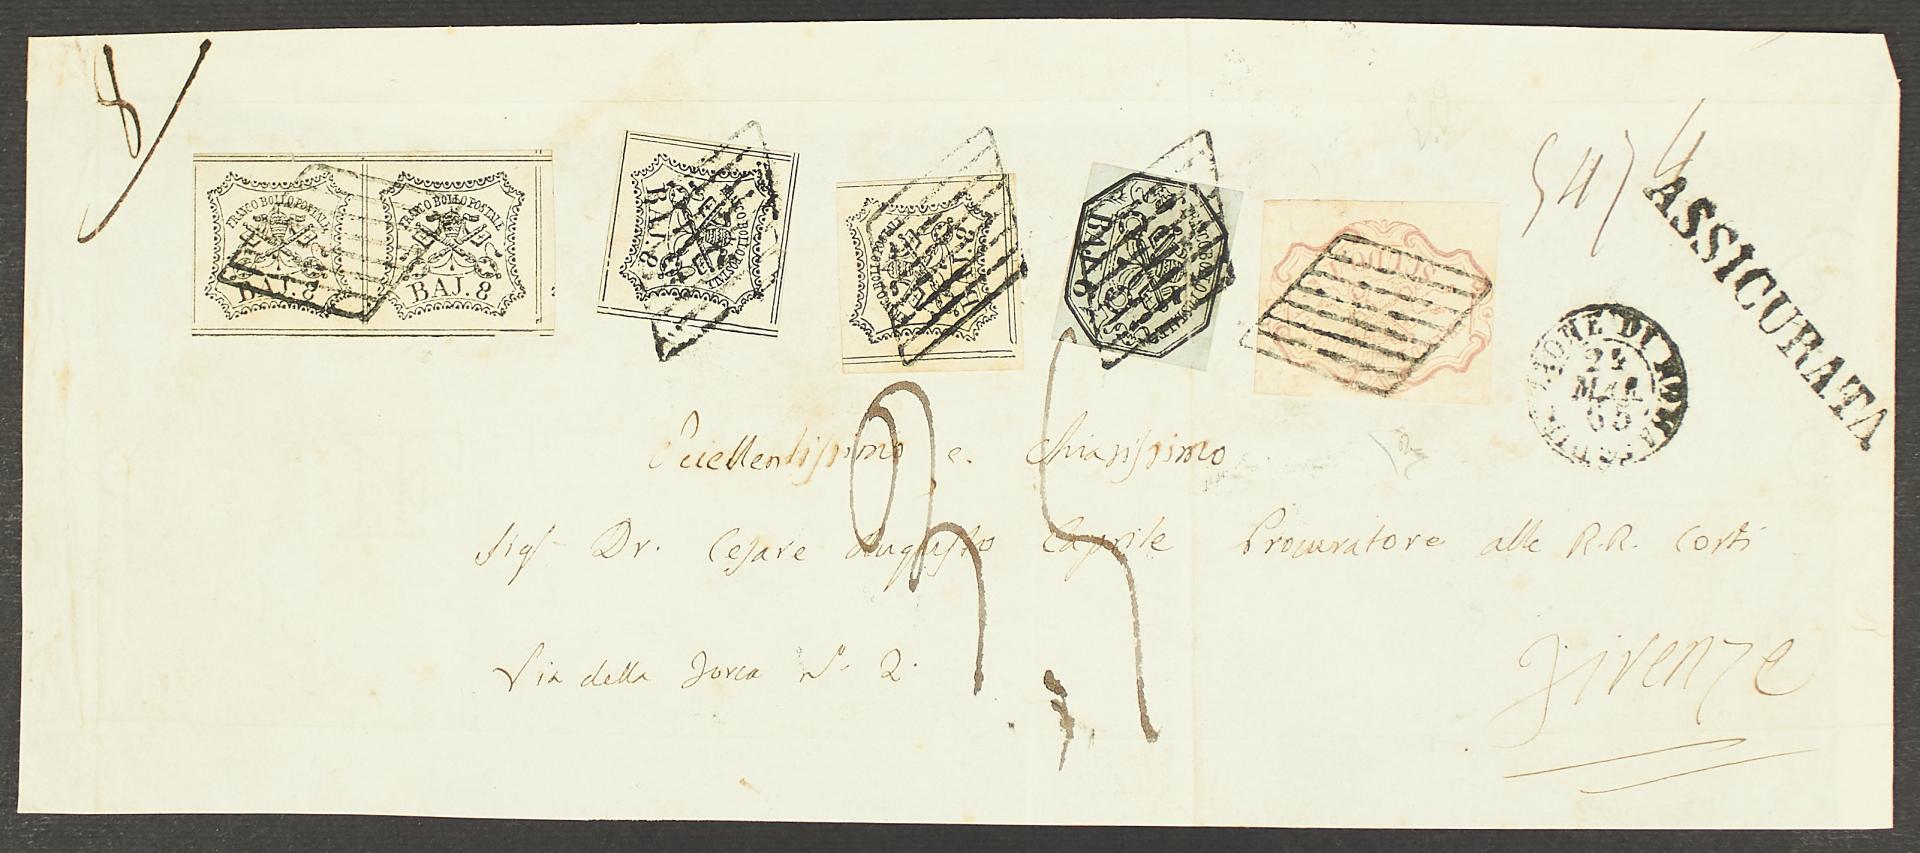 8
FRANCO BOLLO POSTALE
BAJ. 8
FRANCO BOLLO POSTALE
BAJ. 8
FRANCO BOLLO POSTALE
BAJ. 8
FRANCO BOLLO POSTALE
BAJ. 8
FRANCO BOLLO POSTALE
BAJ. 6
SCUDO
5474
ASSICURATA
DI ROMA
MAR
65
Eccellentissimo e Chiarissimo
Sigr Dr. Cesare Augusto Caprile Procuratore alle R.R. Corti
Via della Forca No 2.
Firenze